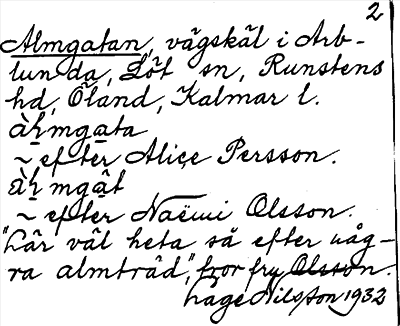 2
Almgatan, vägskäl i Arb-
lunda, Löt sn, Runstens
hd, Öland, Kalmar l.
àḫmga̲ta
~ efter Alice Persson.
àḫmga̲t
~ efter Naëmi Olsson.
"Lär väl heta så efter någ-
ra almträd", tror fru Olsson.
Låge Nilsson 1932